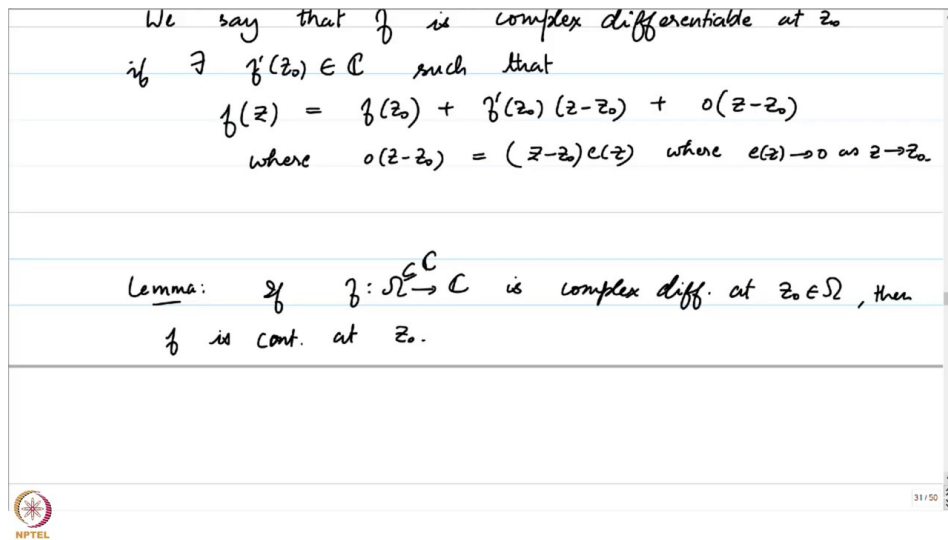 We say that f is complex differentiable at z₀
if ∃ f'(z₀) ∈ ℂ such that
f(z) = f(z₀) + f'(z₀) (z-z₀) + o(z-z₀)
where o(z-z₀) = (z-z₀) e(z) where e(z) → 0 as z → z₀.
Lemma: If f : Ω ⊆ ℂ → ℂ is complex diff. at z₀ ∈ Ω, then
f is cont. at z₀.
31 / 50
NPTEL